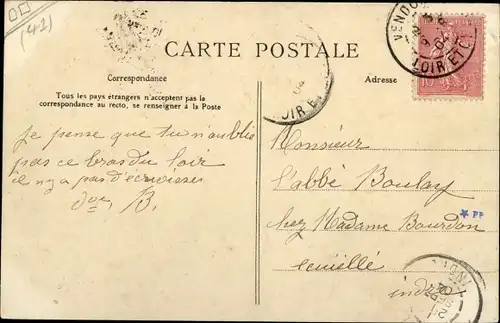 (41)
CARTE POSTALE
Correspondance
Adresse
Tous les pays étrangers n'acceptent pas la
correspondance au recto, se renseigner à la Poste
VENDO
LOIR ET C
OIR E
10
je pense que tu n'oublie
pas ce bras du loir
il n'y a pas d'écrevisses
B.
Monsieur
l'abbé Boulay
chez Madame Bourdon
indre
PP